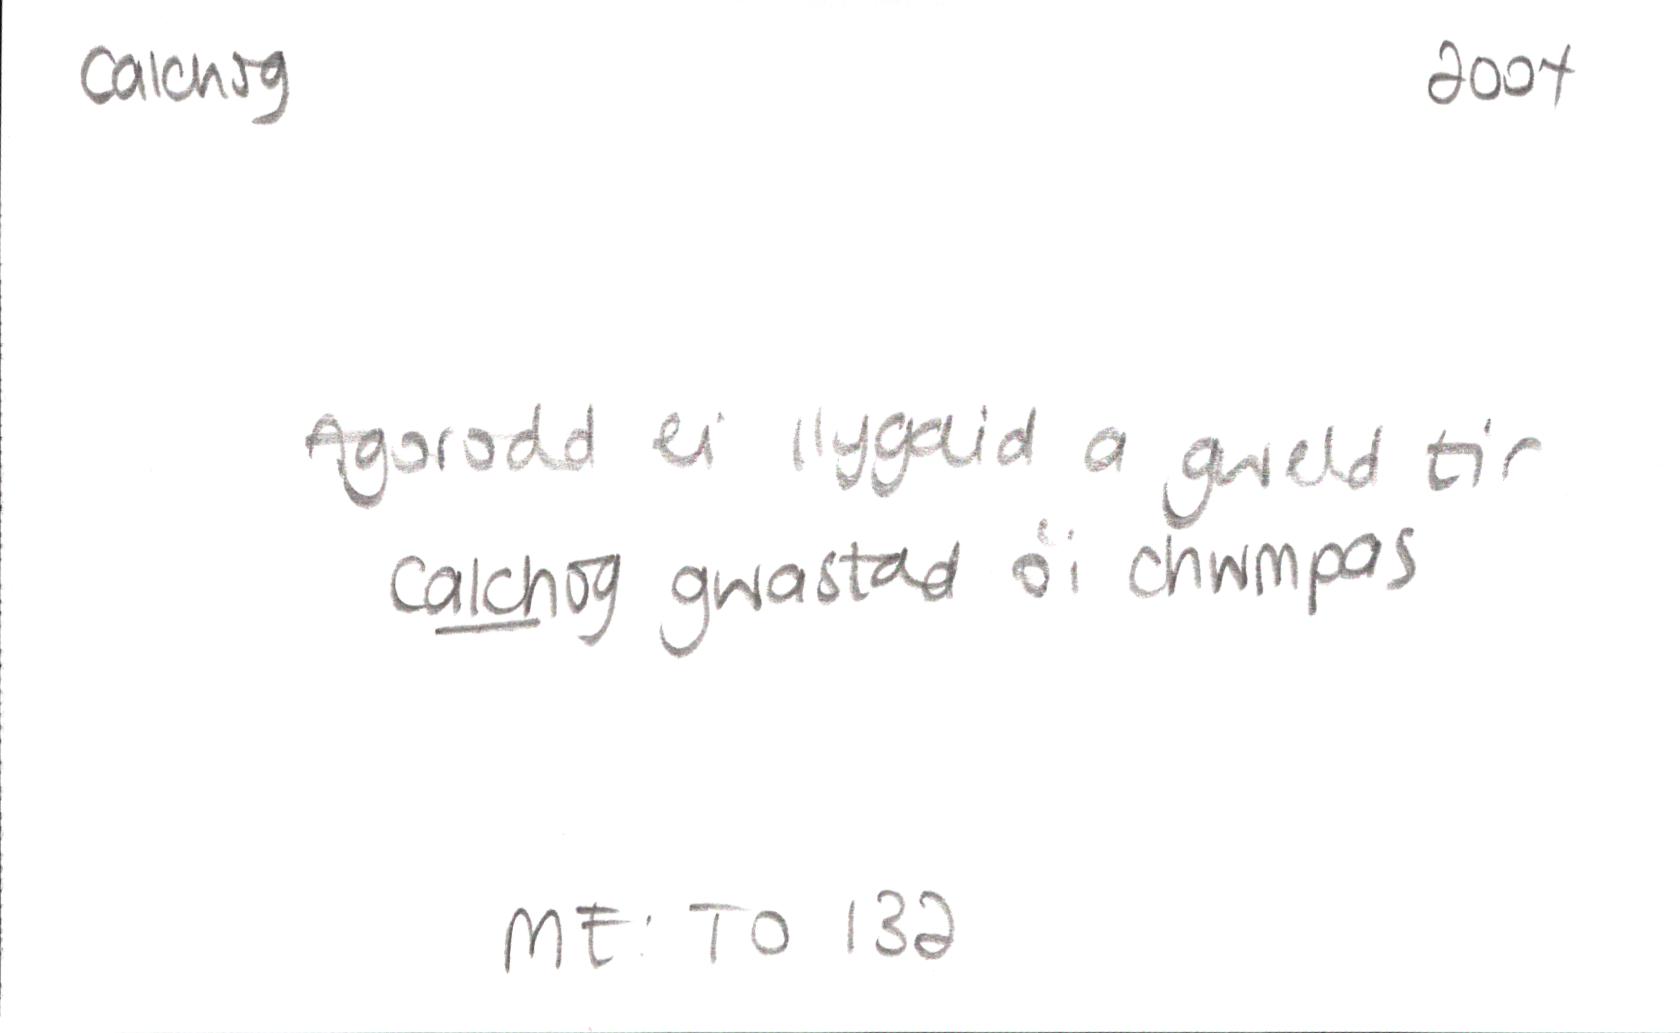 Calchog 2004
Agorodd ei llygaid a gweld tir
Calchog gwastad o'i chwmpas
ME: TO 132